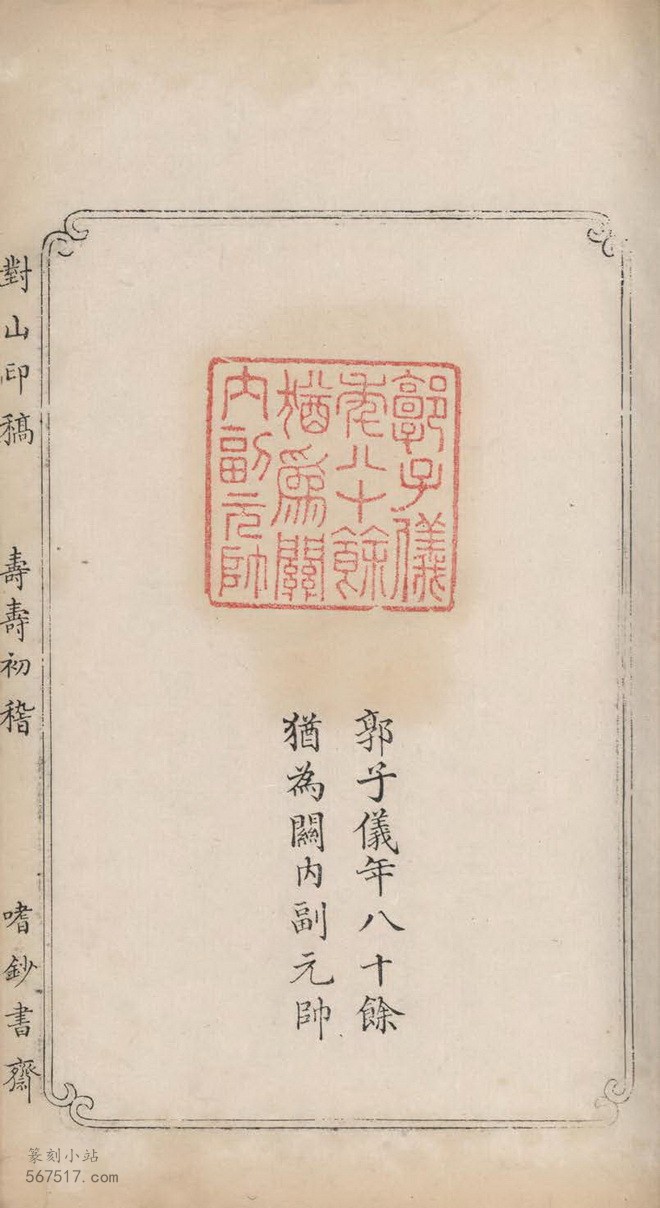 郭子儀
年八十餘
猶爲關
內副元帥
郭子儀年八十餘
猶為關內副元帥
對山印稿
壽壽初稽
嗜鈔書齋
篆刻小站
567517.com